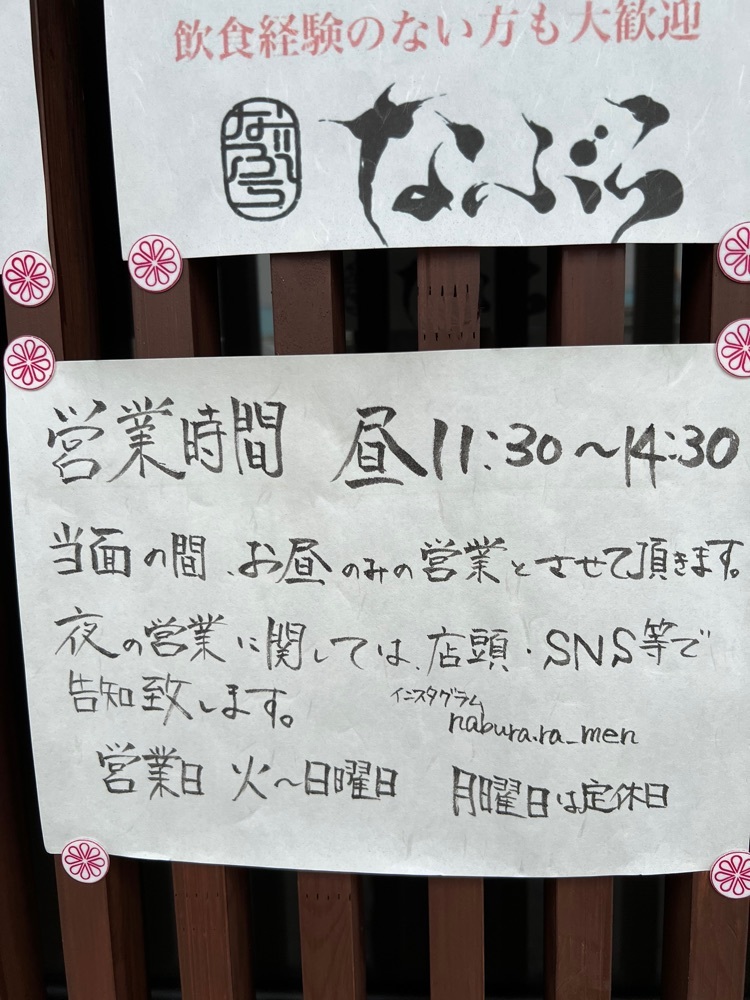 飲食経験のない方も大歓迎
なぶら
なぶら
営業時間 昼11:30〜14:30
当面の間、お昼のみの営業とさせて頂きます。
夜の営業に関しては、店頭・SNS等で
告知致します。
インスタグラム
nabura.ra_men
営業日 火〜日曜日 月曜日は定休日